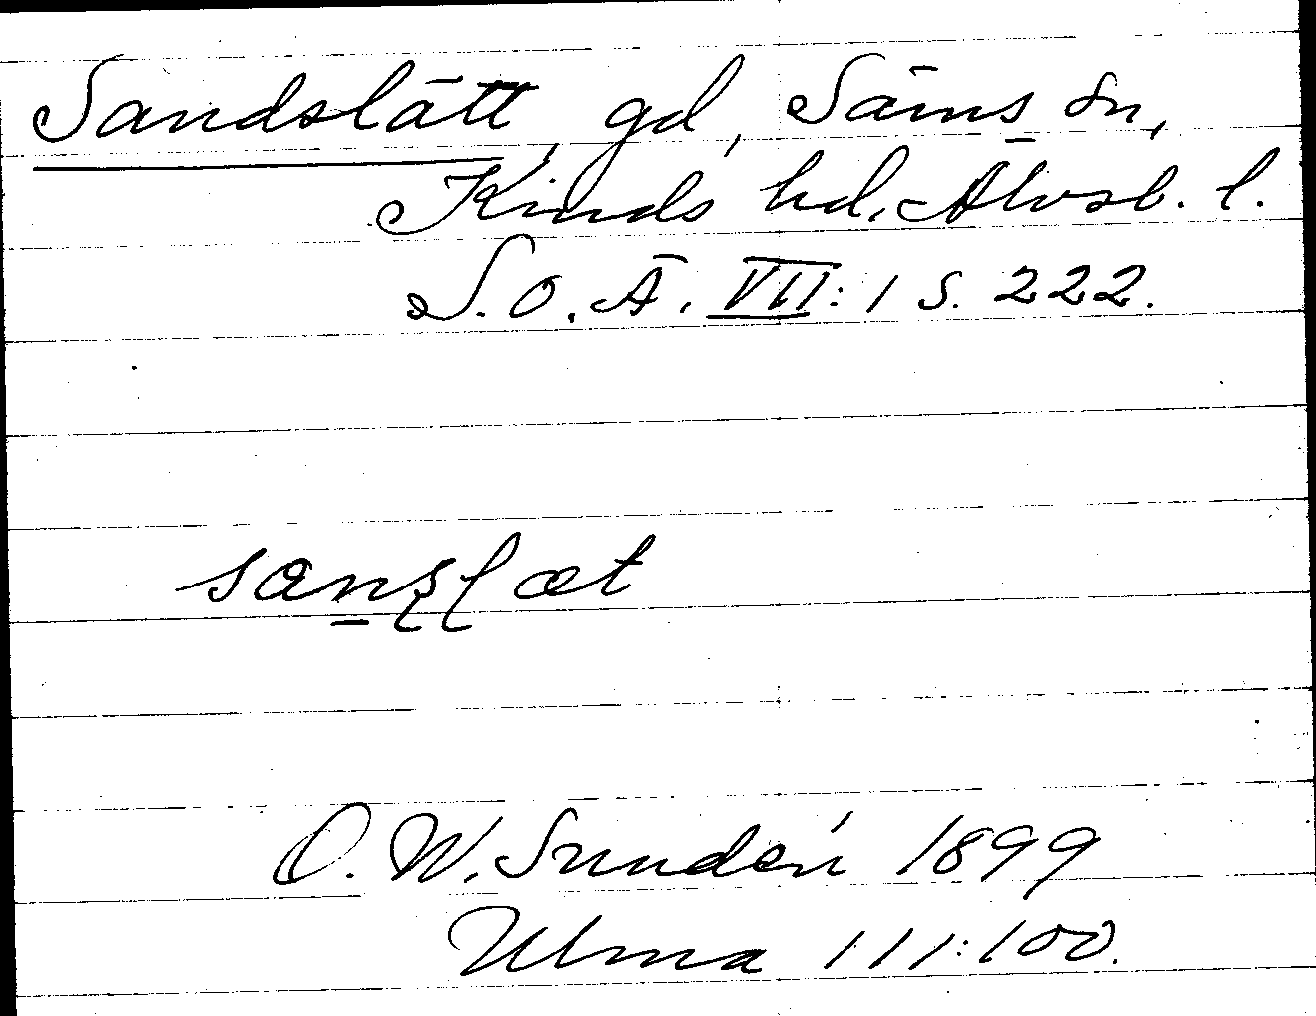 Sandslätt, gd, Säms sn,
Kinds hd, Älvsb. l.
S.O.Ä. VII: 1 s. 222.
O. W. Sundén 1899
Ulma 111:100.